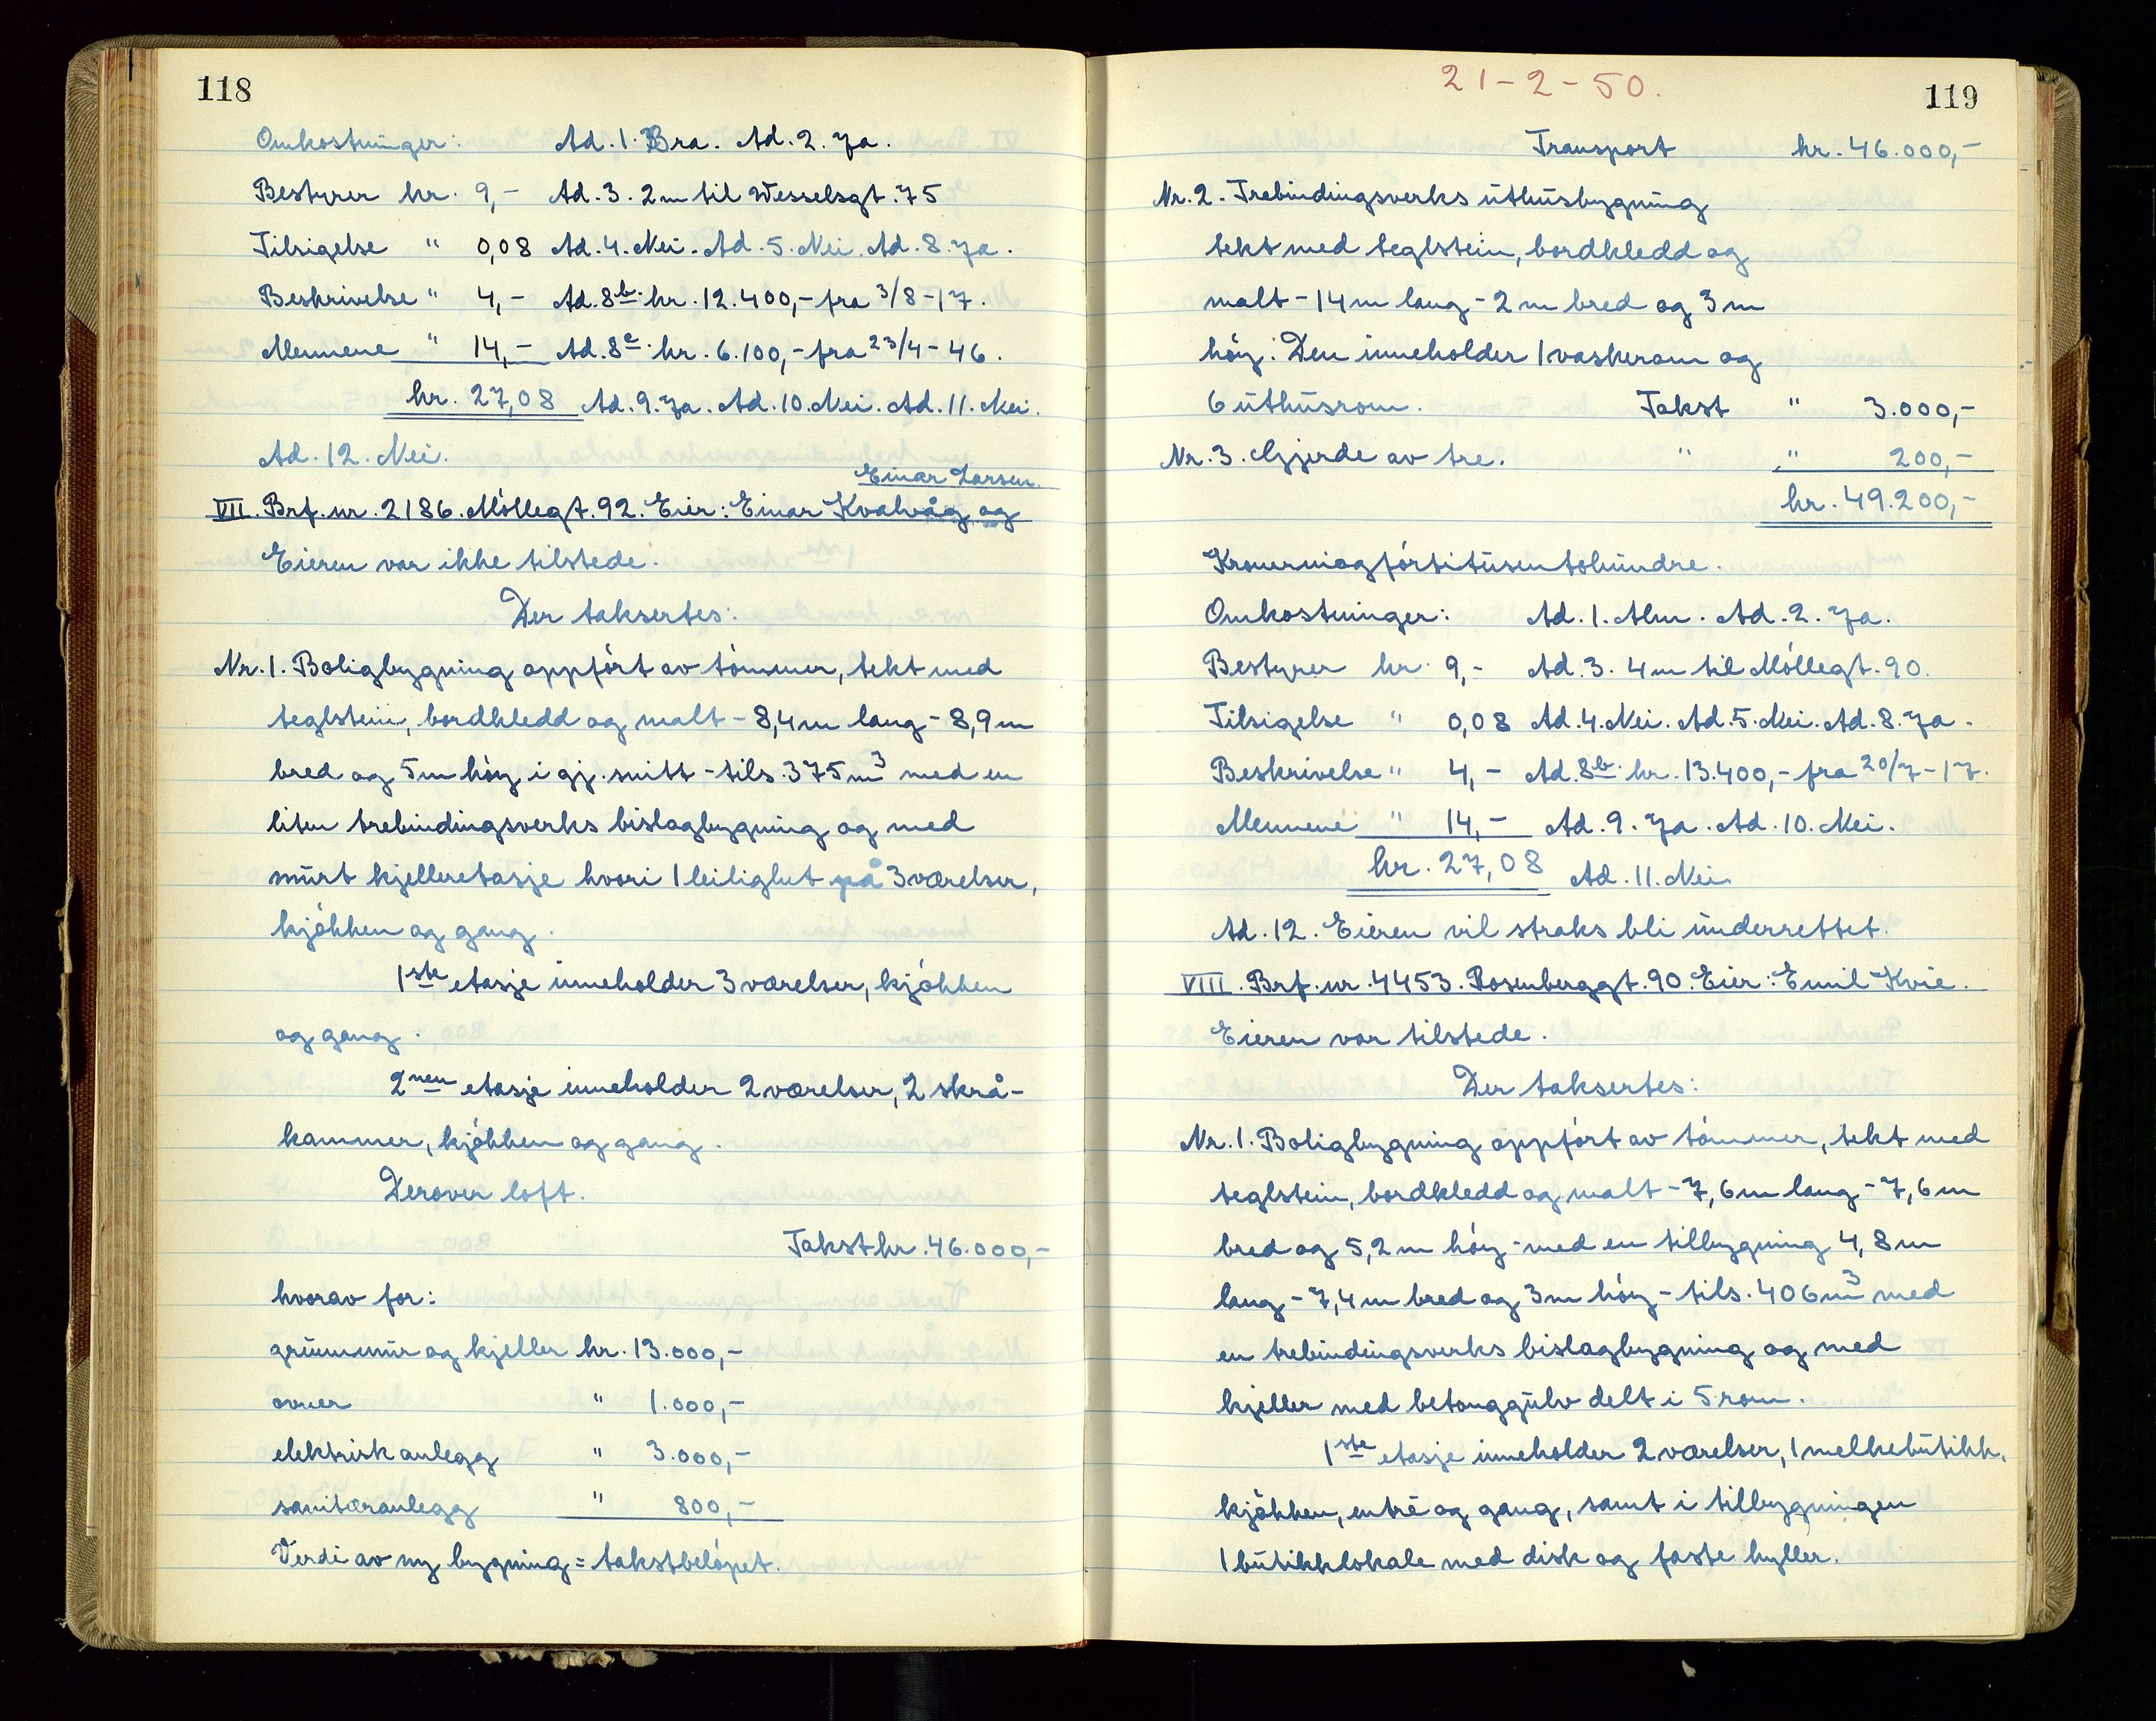 118
Omkostninger: Ad. 1. Bra. Ad. 2. Ja.
Bestyrer kr. 9,- Ad. 3. 2 m til Wesselsgt. 75
Tilsigelse " 0,08 Ad. 4. Nei. Ad. 5. Nei. Ad. 8. Ja.
Beskrivelse " 4,- Ad. 8b. kr. 12.400,- fra 3/8-17.
Mennene " 14,- Ad. 8c. kr. 6.100,- fra 23/4-46.
kr. 27,08 Ad. 9. Ja. Ad. 10. Nei. Ad. 11. Nei.
Ad. 12. Nei.
Einar Larsen.
VII. Brf. nr. 2186. Möllegt. 92. Eier: Einar Kvalvåg og
Eieren var ikke tilstede.
Der taksertes:
Nr. 1. Boligbygning oppfört av tömmer, tekt med
teglstein, bordkledd og malt - 8,4 m lang - 8,9 m
bred og 5 m höy i gj. snitt - tils. 375 m3 med en
liten trebindingsverks bislagbygning og med
murt kjelleretasje hvori 1 leilighet på 3 værelser,
kjökken og gang.
1ste etasje inneholder 3 værelser, kjökken
og gang.
2nen etasje inneholder 2 værelser, 2 skrå-
kammer, kjökken og gang.
Derover loft.
Takst kr. 46.000,-
hvorav for:
grunnmur og kjeller kr. 13.000,-
ovner " 1.000,-
elektrisk anlegg " 3.000,-
sanitæranlegg " 800,-
Verdi av ny bygning = takstbelöpet.
21-2-50.
119
Transport kr. 46.000,-
Nr. 2. Trebindingsverks uthusbygning
tekt med teglstein, bordkledd og
malt - 14 m lang - 2 m bred og 3 m
höy. Den inneholder 1 vaskerom og
6 uthusrom. Takst " 3.000,-
Nr. 3. Gjerde av tre. " " 200,-
kr. 49.200,-
Kronerniogförtitusentohundre.
Omkostninger: Ad. 1. Alm. Ad. 2. Ja.
Bestyrer kr. 9,- Ad. 3. 4 m til Möllegt. 90.
Tilsigelse " 0,08 Ad. 4. Nei. Ad. 5. Nei. Ad. 8. Ja.
Beskrivelse " 4,- Ad. 8b. kr. 13.400,- fra 20/7-17.
Mennene " 14,- Ad. 9. Ja. Ad. 10. Nei.
kr. 27,08 Ad. 11. Nei
Ad. 12. Eieren vil straks bli underrettet.
VIII. Brf. nr. 4453. Rosenberggt. 90. Eier: Emil Kvie.
Eieren var tilstede.
Der taksertes:
Nr. 1. Boligbygning oppfört av tömmer, tekt med
teglstein, bordkledd og malt - 7,6 m lang - 7,6 m
bred og 5,2 m höy - med en tilbygning 4,8 m
lang - 7,4 m bred og 3 m höy - tils. 406 m3 med
en trebindingsverks bislagbygning og med
kjeller med betonggulv delt i 5 rom.
1ste etasje inneholder 2 værelser, 1 melkebutikk,
kjökken, entré og gang, samt i tilbygningen
1 butikklokale med disk og faste hyller.